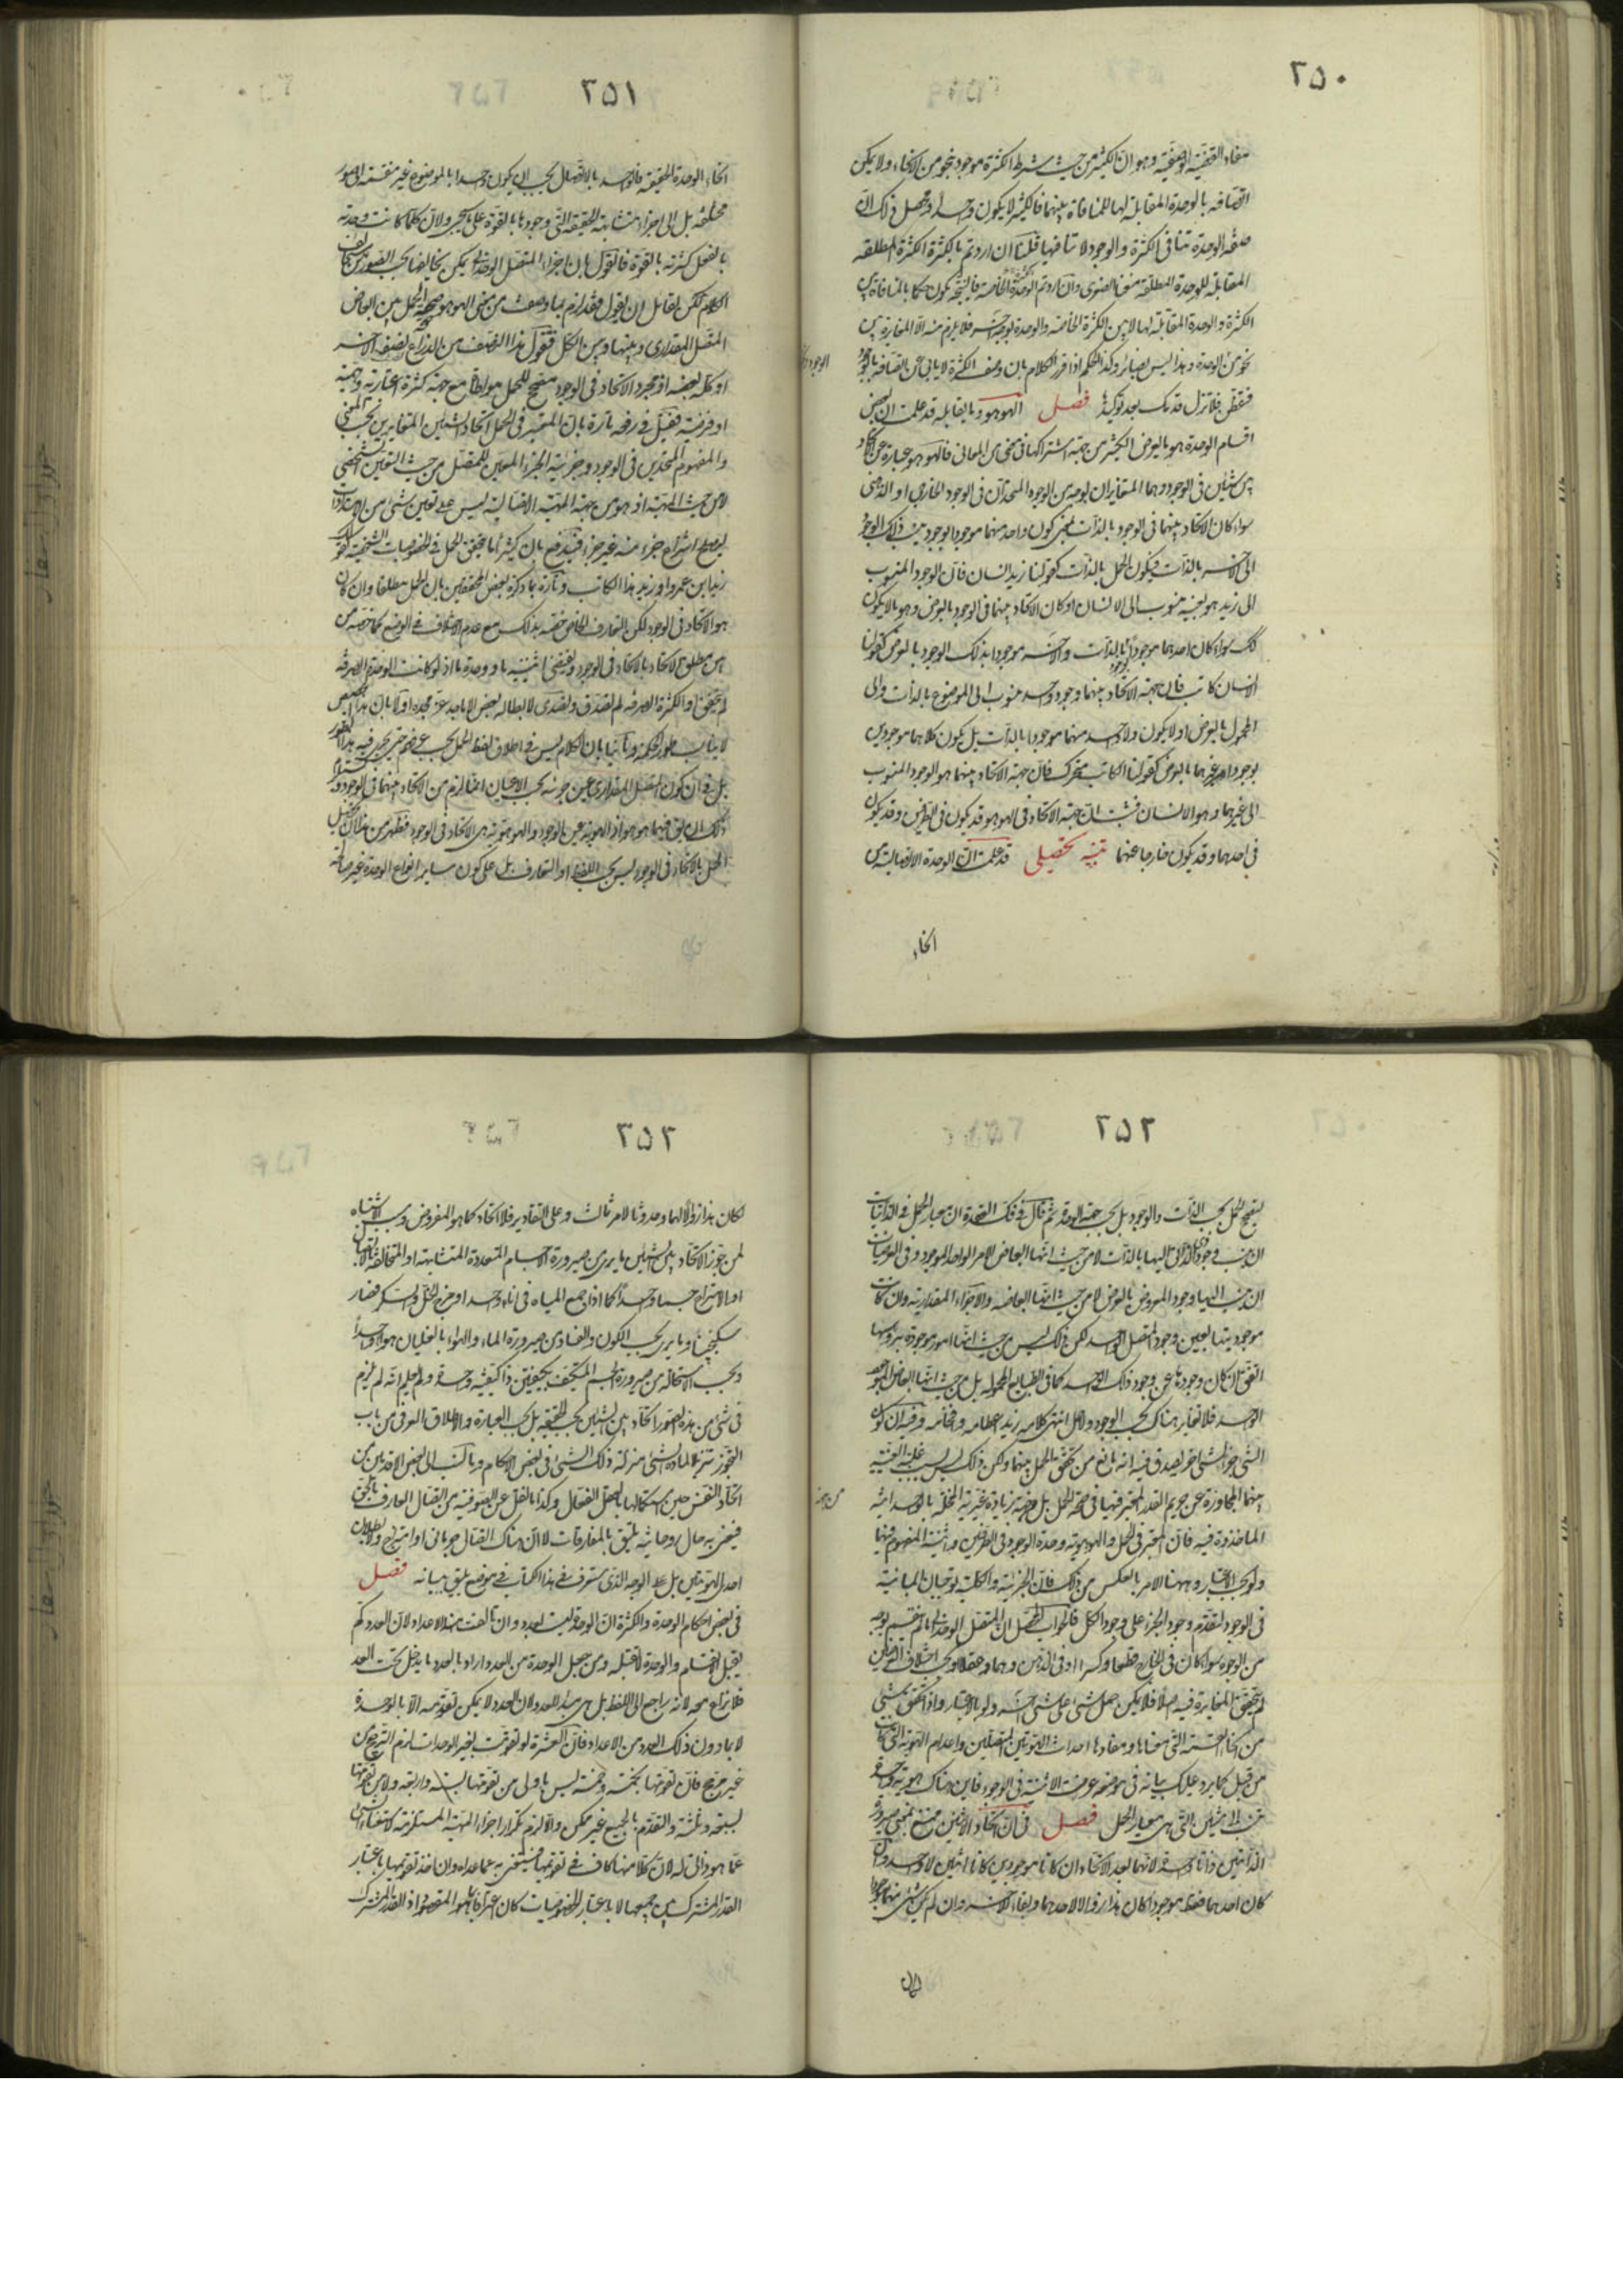 ٢٥٠
مفاد القضية الوصفية وهو ان الكثير من حيث شرط الكثرة موجود بنحو من الانحاء ولا يمكن
اتصافه بالوحدة المقابلة لها للمنافاة بينهما فالكثير لا يكون واحدا ومحصل ذلك ان
صفة الوحدة تنافى الكثرة والوجود لا تنافيها قلنا ان اردتم بالكثرة الكثرة المطلقة
المقابلة للوحدة المطلقة منعنا الصغرى وان اردتم الكثرة الخاصة فالنتيجة يكون حكما بالمنافاة بين
الكثرة والوحدة المقابلة لها لا بين الكثرة الخاصة والوحدة بوجه آخر فلا يلزم منه الا المغايرة بين
نحو من الوحدة وهذا ليس بضائر وكذا الحكم اذا قرر الكلام بان وصف الكثرة لا يابى عن اتصافه بالوجود
فتفطن فلا تزل قدمك بعد توكيدها فصل الهو هو وما يقابله قد علمت ان بعض
اقسام الوحدة هو ما يعرض الكثير من جهة اشتراكها فى معنى من المعانى فالهو هو عبارة عن الاتحاد
بين شيئين فى الوجود وهما المتغايران بوجه من الوجوه المتحدان فى الوجود الخارجى او الذهنى
سواء كان الاتحاد بينهما فى الوجود بالذات بمعنى كون واحد منهما موجودا بوجود ينسب ذلك الوجود
الى الآخر بالذات فيكون الحمل بالذات كقولنا زيد انسان فان الوجود المنسوب
الى زيد هو بعينه منسوب الى الانسان او كان الاتحاد بينهما فى الوجود بالعرض وهو ما لا يكون
كك سواء كان احدهما موجودا بالذات والآخر موجودا بذلك الوجود بالعرض كقولنا
الانسان كاتب فان جهة الاتحاد بينهما وجود واحد منسوب الى الموضوع بالذات والى
المحمول بالعرض او لا يكون ولا واحد منهما موجودا بالذات بل يكون كلاهما موجودين
بوجود امر غيرهما بالعرض كقولنا الكاتب متحرك فان جهة الاتحاد بينهما هو الوجود المنسوب
الى غيرهما وهو الانسان فثبت ان جهة الاتحاد فى الهو هو قد يكون فى الطرفين وقد يكون
فى احدهما وقد يكون خارجا عنهما تنبيه تحصيلى قد علمت ان الوحدة الاتصالية من
انحاء
٢٥١
انحاء الوحدة الحقيقية فالواحد بالاتصال يجب ان يكون واحدا بالموضوع غير منقسمة الى صور
مختلفة بل الى اجزاء متشابهة الحقيقة التى وجودها بالقوة على ما سيجىء ولان كلما كانت وحدته
بالفعل كثرته بالقوة فالقول بان اجزاء المتصل الوحدانى يمكن تخالفها بحسب الصور
الكلام لكن لقائل ان يقول فقد لزم بما وصفت من معنى الهو هو صحة الحمل بين ابعاض
المتصل المقدارى وبينها وبين الكل فتقول هذا النصف من الذراع نصفه الآخر
او كله بعضه اذ مجرد الاتحاد فى الوجود مصحح للحمل مواطاة مع جهة كثرة اعتبارية وهمية
او فرضية فقيل فى دفعه تارة بان المعتبر فى الحمل اتحاد الشيئين المتغايرين بحسب المعنى
والمفهوم المتحدين فى الوجود وجزئية الجزء المعين للمتصل من حيث التعين الشخصى
لا من حيث المهية اذ هو من جهة المهية الاتصالية ليس على تعين شىء من الامتدادات
ليصلح انتزاع جزء منه غير جزء فيندفع بان كثيرا ما تحقق الحمل فى الخصوصيات الشخصية كقولك
زيد ابن عمرو او زيد هذا الكاتب وتارة بما ذكره بعض المحققين بان الحمل مطلقا وان كان
هو الاتحاد فى الوجود لكن التعارف الخاص خصه بذلك مع عدم الاختلاف فى الوضع كما خصه من
بين مطلق الاتحاد بالاتحاد فى الوجود ويقتضى اثنينية ما ووحدة ما اذ لو كانت الوحدة الصرفة
لم يتحقق او الكثرة الصرفة لم تصدق وتصدى لابطاله بعض الاماجد عز مجده اولا بان هذا التخصيص
لا يناسب طور الحكمة وثانيا بان الكلام ليس فى اطلاق لفظ الحمل بحسب عرفهم حتى يجرى فيه هذا العذر
بل فى ان كون المتصل المقدارى عين جزئه بحسب الاعيان انما لزم من الاتحاد بينهما فى الوجود
ذلك ان يق فيهما هو هو اذ الهوية عين بالوجود والهو هوية هى الاتحاد فى الوجود فظهر من هذا ان تخصيص
الحمل بالاتحاد فى الوجود ليس بحسب اللفظ او التعارف بل على كون ساير انواع الوحدة غير صالحة
٢٥٢
لتصحيح الحمل بحسب الذات والوجود بل بحسب جهة الوحدة ثم قال فى فك العقدة ان معيار الحمل فى الذاتيات
ان ينسب وجود ذى الذاتى اليها بالذات لا من حيث انها ابعاض الامر الواحد الموجود وفى العرضيات
ان ينسب اليها وجود المعروض بالعرض لا من حيث انها ابعاضه والاجزاء المقدارية وان كانت
موجوديتها بعين وجود المتصل الواحد لكن ذلك ليس من حيث انها امور موجودة برؤسها
اتفق ان كان وجودها عين وجود ذلك الواحد كما فى الطبايع المحمولة بل من حيث انها ابعاض الموجود
الواحد فلا تغاير هناك بحسب الوجود ولعل انتهى كلامه زيد اعظامه وافخامه وفيه ان كون
الشىء جزء الشىء آخر لم يصدق فيه انه مانع من تحقق الحمل بينهما ولكن ذلك ليس بسبب غلبة الغيرية
بينهما المجاوزة عن حريم القدر المعتبر منها فى صحة الحمل بل من جهة زيادة غيرية المخلة بالوحدانية
الماخوذة فيه فان المعتبر فى الحمل والهو هوية وحدة الوجود فى الطرفين واثنينية المفهوم فيهما
ولو بحسب الاعتبار وههنا الامر بالعكس من ذلك فان الجزئية والكلية يوجبان المباينة
فى الوجود لتقدم وجود الجزء على وجود الكل فالجواب المحصل ان المتصل الوحدانى ما لم ينقسم بوجه
من الوجوه سواء كان فى الخارج قطعا وكسرا او فى الذهن وهما وعقلا او بحسب اختلاف العرضين
لم يتحقق المغايرة فيه اصلا فلا يمكن حمل شىء على شىء آخر ولو بالاعتبار واذا تحقق شىء
من انحاء القسمة التى معناها ومفادها احداث الهويتين المتصلين واعدام الهوية التى كانت
من قبل كما يرد عليك بيانه فى موضعه عرضت الاثنينية فى الوجود فاين هناك هوية واحدة
تنسب الى شيئين التى هى معيار الحمل فصل فى ان اتحاد الاثنين ممتنع بمعنى صيرورة
الذاتين ذاتا واحدة لانهما بعد الاتحاد ان كانا موجودين كانا اثنين لا واحدا وان
كان احدهما فقط موجودا كان هذا زوالا لاحدهما وبقاء للآخر وان لم يكن شىء منهما موجودا
كان
٢٥٣
لكان هذا زوالا لهما وحدوثا لامر ثالث وعلى التقادير فلا اتحاد كما هو المفروض وسبب الاشتباه
لمن جوز الاتحاد بين الشيئين ما يرى من صيرورة الاجسام المتعددة المتشابهة او المتخالفة بالاتصال
او الامتزاج جسما واحدا كما اذا جمع المياه فى اناء واحد او مزج الخل والسكر فصار
سكنجبينا وما يرى بحسب الكون والفساد من صيرورة الماء والهواء بالغليان هواء واحدا
وبحسب الاستحالة من صيرورة الجسم المتكيف بكيفيتين ذا كيفية واحدة ولم يعلم انه لم يلزم
فى شىء من هذه الصور اتحاد بين الشيئين بحسب الحقيقة بل بحسب العبارة والاطلاق العرفى من باب
التجوز تنزيلا لمادة الشىء منزلة ذلك الشىء فى بعض الاحكام وما نسب الى بعض الاقدمين من
اتحاد النفس حين استكمالها بالعقل الفعال وكذا ما نقل عن الصوفية من اتصال العارف بالحق
فيعنى به حال روحانية تليق بالمفارقات لا ان هناك اتصال جرمانى او امتزاج ولا بطلان
احدى الهويتين بل على الوجه الذى ستعرف فى هذا الكتاب فى موضع يليق بيانه فصل
فى بعض احكام الوحدة والكثرة ان الوحدة ليست بعدد وان تالفت منها الاعداد لان العدد كم
يقبل الانقسام والوحدة لا تقبله ومن جعل الوحدة من العدد اراد بالعدد ما يدخل تحت العد
فلا نزاع معه لانه راجع الى اللفظ بل هى مبدء للعدد لان العدد لا يمكن تقومه الا بالوحدة
لا بما دون ذلك العدد من الاعداد فان العشرة لو تقومت بغير الوحدات لزم الترجيح من
غير مرجح فان تقومها بخمسة وخمسة ليس باولى من تقومها بستة واربعة ولا من تقومها
بسبعة وثلثة والتقوم بالجميع غير ممكن والا لزم تكرار اجزاء المهية المستلزمة لاستغناء الشىء
عما هو ذاتى له لان كلا منها كاف فى تقومها فيستغنى به عما عداه وان اخذ تقومها باعتبار
القدر المشترك بين جميعها لا باعتبار الخصوصيات كان اعترافا بما هو المقصود اذ القدر المشترك